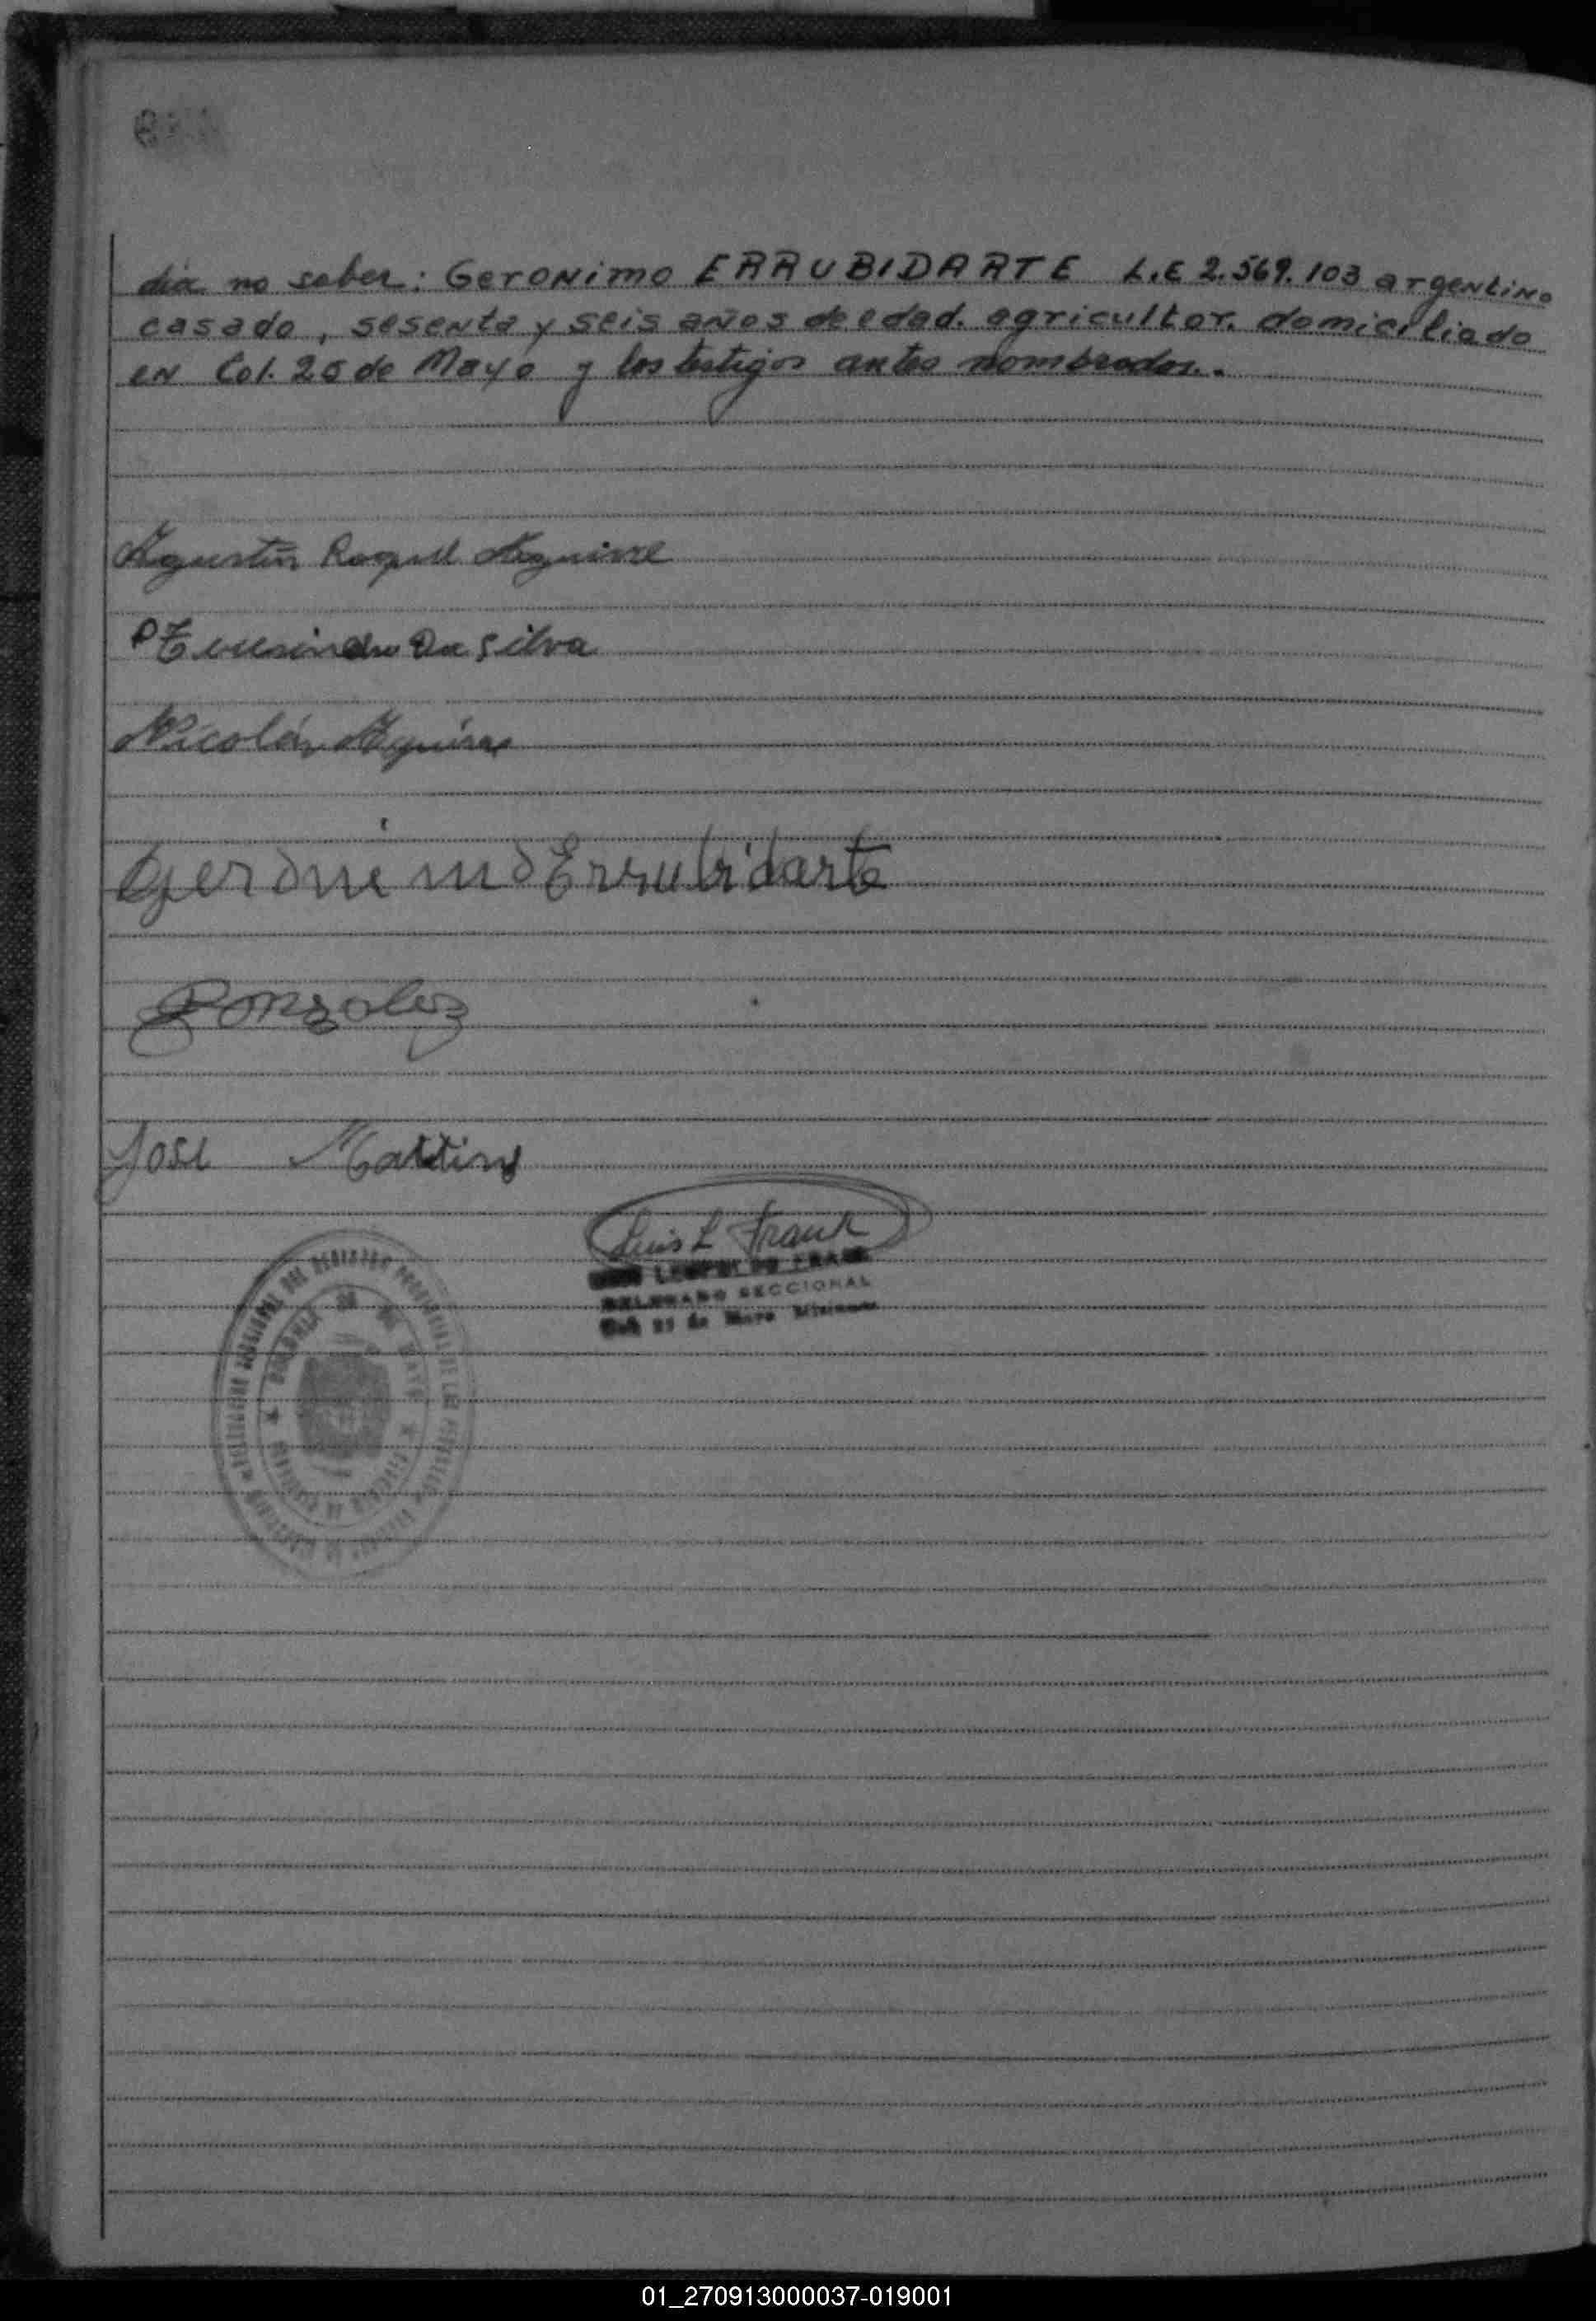 dia no saber: GERONimo ERRUBIDARTE L.E 2.569.103 argentino
casado, sesenta y seis años de edad. agricultor. domiciliado
en Col. 25 de Mayo y los testigos antes nombrados.
Agustin Roque Aguirre
Da Silva
Nicolás Aguirre
Geronimo Errubidarte
Gonzalez
Jose Martins
Luis L Frank
DELEGADO SECCIONAL
Col. 25 de Mayo Misiones
COLONIA 25 DE MAYO
01_270913000037-019001